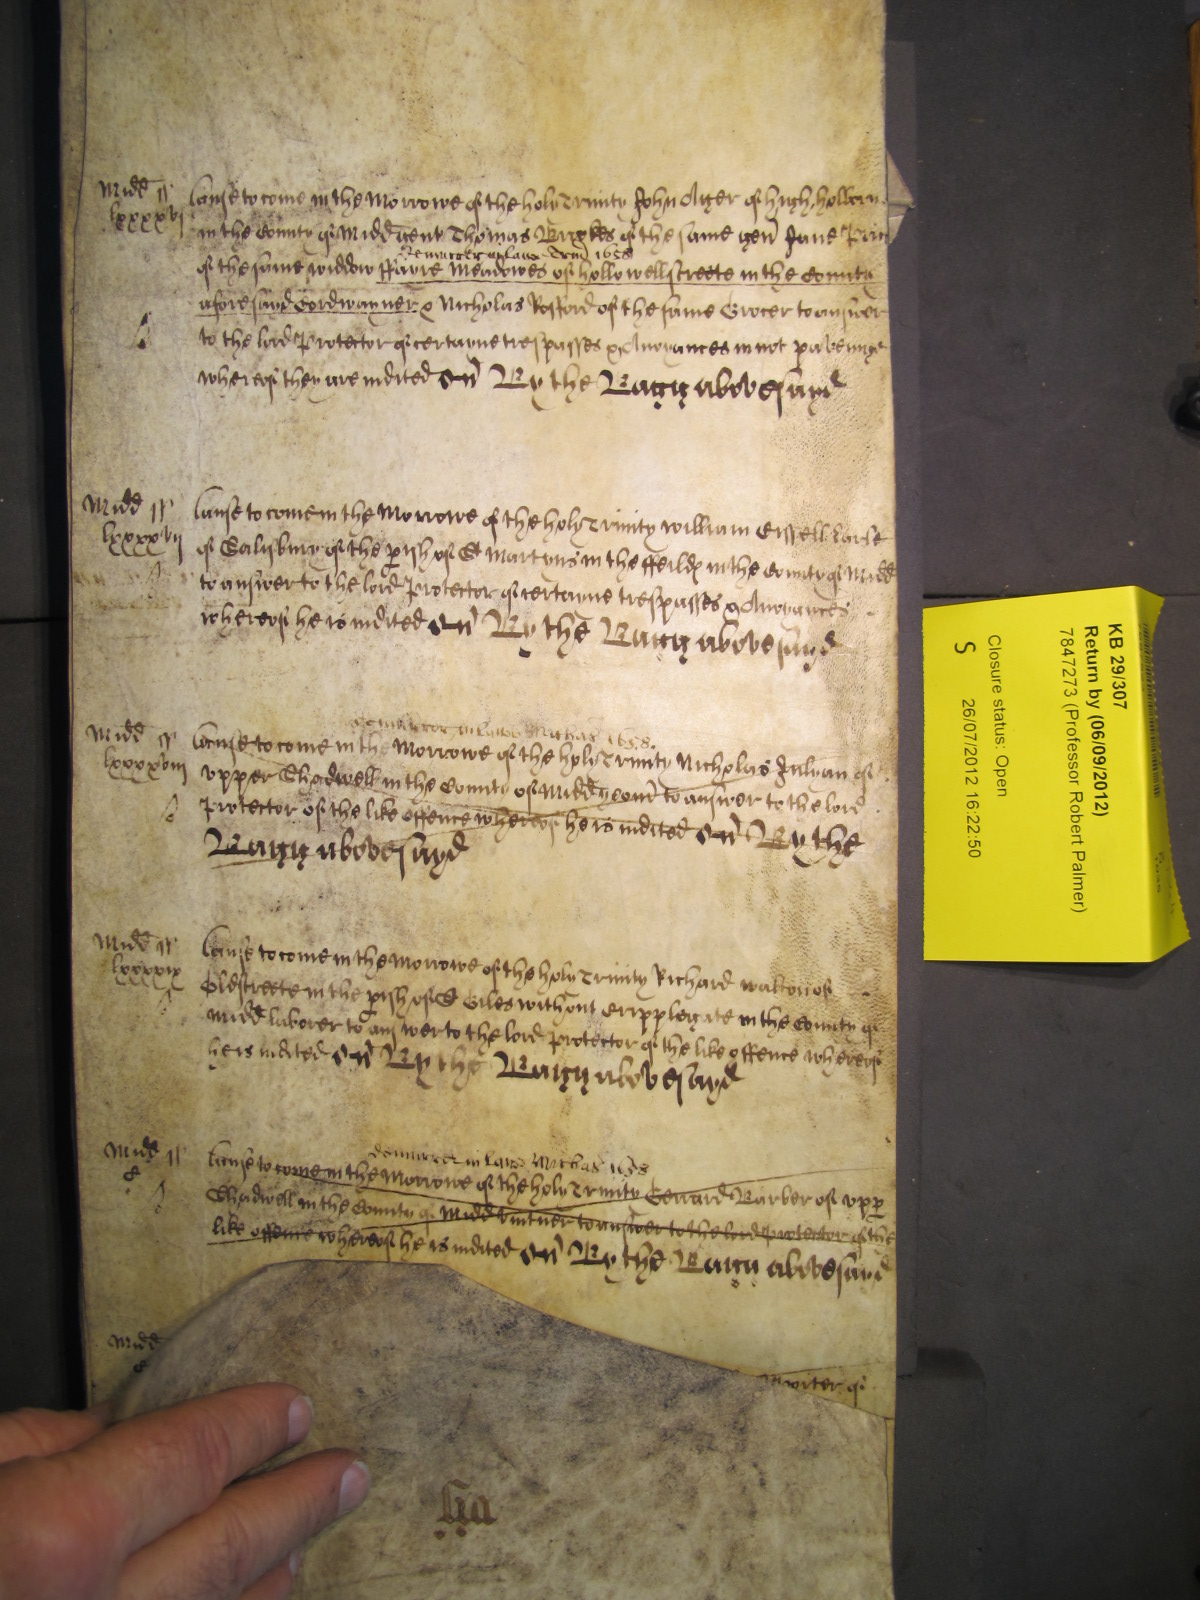 Midd ss Cause to come in the Morrowe of the holy Trinity John Alger of high holborn
lxxxxvj in the County of Midd gent Thomas Brookes of the same gen Jane
demurrer in lawe Trin 1658
of the same widdow ffavre Meadowes of hollowellstreete in the County
aforesayd Cordwayner & Nicholas Rofford of the same Grocer to answer
to the lord Protector of certayne trespasses & Anoyances in not paveinge
whereof they are indited &c By the Bagg abovesayd
Midd ss Cause to come in the Morrowe of the holy Trinity William Cissell Earle
lxxxxvij of Salisbury of the pish of St Martyns in the ffeilds in the County of Midd
to answer to the lord Protector of certayne trespasses & Anoyances
whereof he is indited &c By the Bagg abovesayd
demurrer in lawe Michas 1658.
Midd ss Cause to come in the Morrowe of the holy Trinity Nicholas Julyan of
lxxxxviij vpper Shadwell in the County of Midd to answer to the lord
Protector of the like offence whereof he is indited &c By the
Bagg abovesayd
Midd ss Cause to come in the Morrowe of the holy Trinity Richard Walton of
lxxxxix Oldstreete in the pish of St Giles without Cripplegate in the County of
Midd laborer to answer to the lord Protector of the like offence whereof
he is indited &c By the Bagg abovesayd
demurrer in lawe Michas 1658
Midd ss Cause to come in the Morrowe of the holy Trinity Edward Barber of vpp
C Shadwell in the County of Midd vintner to answer to the lord Protector of the
like offence whereof he is indited &c By the Bagg abovesayd
Midd
C
KB 29/307
Return by (06/09/2012)
7847273 (Professor Robert Palmer)
Closure status: Open
S 26/07/2012 16:22:50